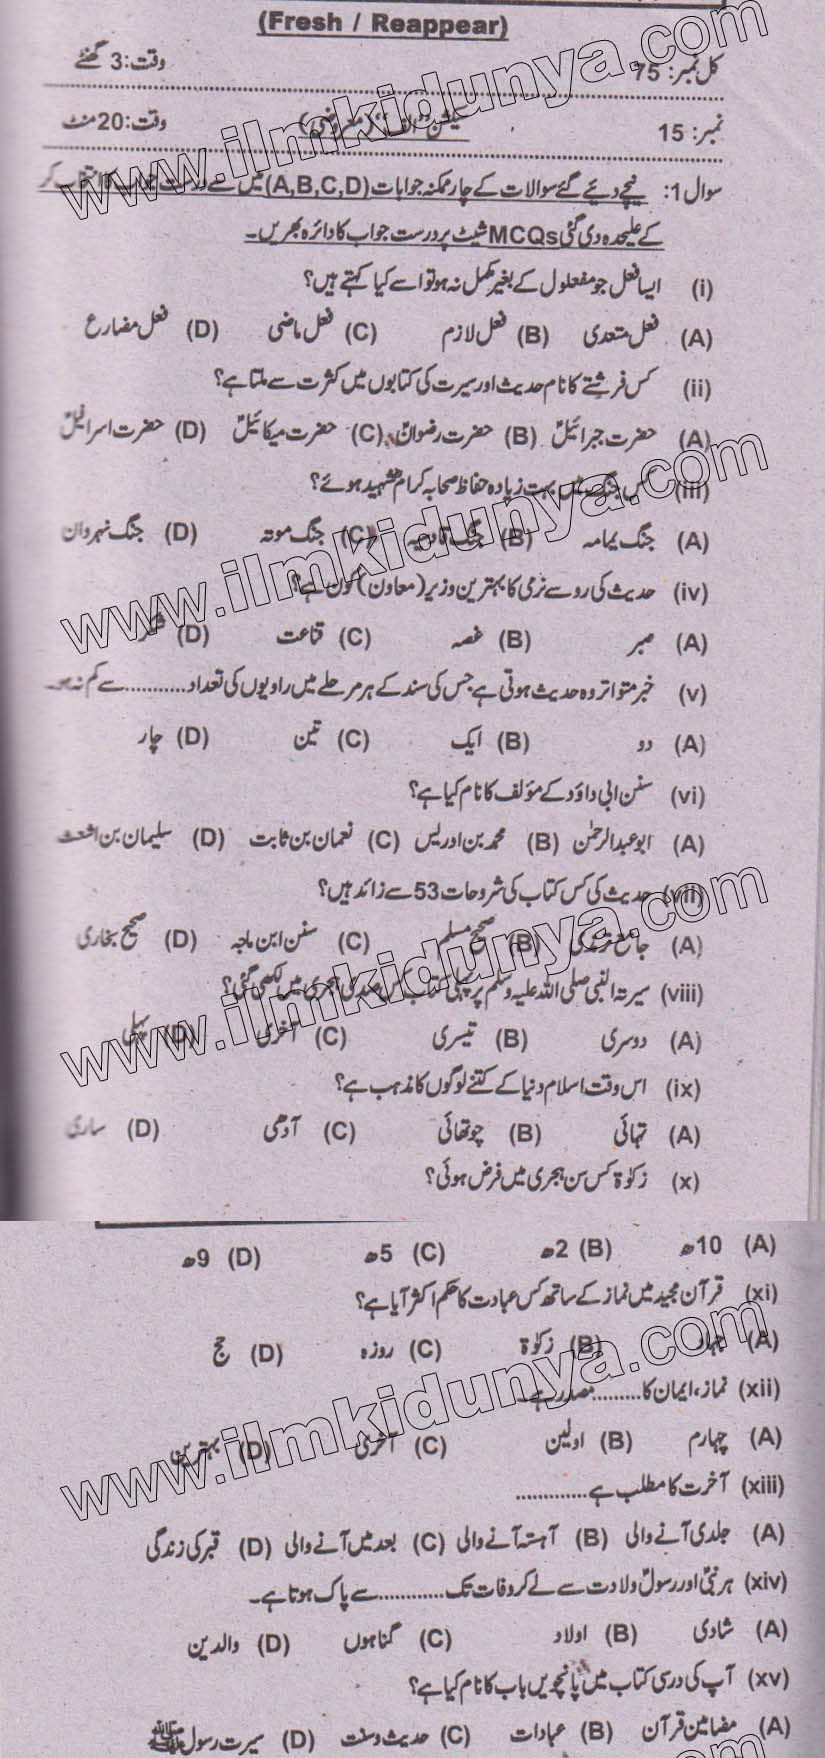 (Fresh / Reappear)
کل نمبر: 75 وقت: 3 گھنٹے
نمبر: 15 سیکشن "الف" (معروضی) وقت: 20 منٹ
سوال 1: نیچے دیئے گئے سوالات کے چار ممکنہ جوابات (A,B,C,D) میں سے درست جواب کا انتخاب کر
کے علیحدہ دی گئی MCQs شیٹ پر درست جواب کا دائرہ بھریں۔
(i) ایسا فعل جو مفعول کے بغیر مکمل نہ ہو تو اسے کیا کہتے ہیں؟
(A) فعل متعدی (B) فعل لازم (C) فعل ماضی (D) فعل مضارع
(ii) کس فرشتے کا نام حدیث اور سیرت کی کتابوں میں کثرت سے ملتا ہے؟
(A) حضرت جبرائیلؑ (B) حضرت رضوانؑ (C) حضرت میکائیلؑ (D) حضرت اسرافیلؑ
(iii) کس جنگ میں بہت زیادہ حفاظ صحابہ کرامؓ شہید ہوئے؟
(A) جنگ یمامہ (B) جنگ قادسیہ (C) جنگ موتہ (D) جنگ نہروان
(iv) حدیث کی رو سے نرمی کا بہترین وزیر (معاون) کون ہے؟
(A) صبر (B) غصہ (C) قناعت (D) شکر
(v) خبر متواتر وہ حدیث ہوتی ہے جس کی سند کے ہر مرحلے میں راویوں کی تعداد........... سے کم نہ ہو۔
(A) دو (B) ایک (C) تین (D) چار
(vi) سنن ابی داؤد کے مؤلف کا نام کیا ہے؟
(A) ابو عبدالرحمٰن (B) محمد بن ادریس (C) نعمان بن ثابت (D) سلیمان بن اشعث
(vii) حدیث کی کس کتاب کی شروحات 53 سے زائد ہیں؟
(A) جامع ترمذی (B) صحیح مسلم (C) سنن ابن ماجہ (D) صحیح بخاری
(viii) سیرۃ النبی صلی اللہ علیہ وسلم پر پہلی کتاب کس صدی ہجری میں لکھی گئی؟
(A) دوسری (B) تیسری (C) آخری (D) پہلی
(ix) اس وقت اسلام دنیا کے کتنے لوگوں کا مذہب ہے؟
(A) تہائی (B) چوتھائی (C) آدھی (D) ساری
(x) زکوٰۃ کس سن ہجری میں فرض ہوئی؟
(A) 10ھ (B) 2ھ (C) 5ھ (D) 9ھ
(xi) قرآن مجید میں نماز کے ساتھ کس عبادت کا حکم اکثر آیا ہے؟
(A) جہاد (B) زکوٰۃ (C) روزہ (D) حج
(xii) نماز، ایمان کا......... مصدر ہے۔
(A) چہارم (B) اولین (C) آخری (D) بہترین
(xiii) آخرت کا مطلب ہے.............
(A) جلدی آنے والی (B) آہستہ آنے والی (C) بعد میں آنے والی (D) قبر کی زندگی
(xiv) ہر نبیؑ اور رسولؑ ولادت سے لے کر وفات تک............ سے پاک ہوتا ہے۔
(A) شادی (B) اولاد (C) گناہوں (D) والدین
(xv) آپ کی درسی کتاب میں پانچویں باب کا نام کیا ہے؟
(A) مضامین قرآن (B) عبادات (C) حدیث و سنت (D) سیرت رسول ﷺ
www.ilmkidunya.com
www.ilmkidunya.com
www.ilmkidunya.com
www.ilmkidunya.com